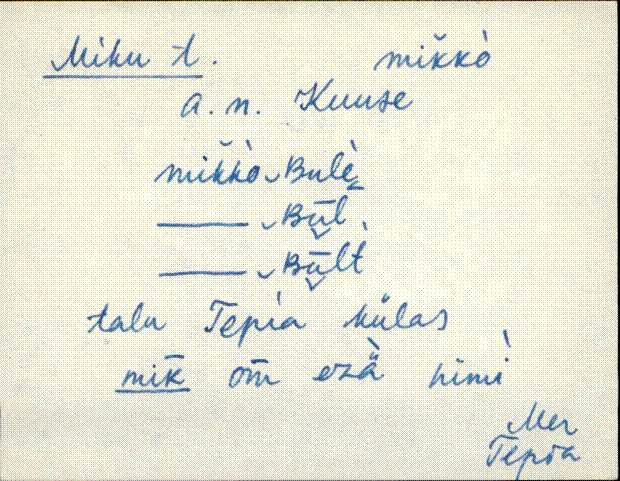 Miku t. mik̆kò
a. n. Kuuse
mik̆kò Bulè
——— Būl
——— Būlt
talu Tepia külas
mik̄ om̄ ezä̀ nimì
Mer
Tepia